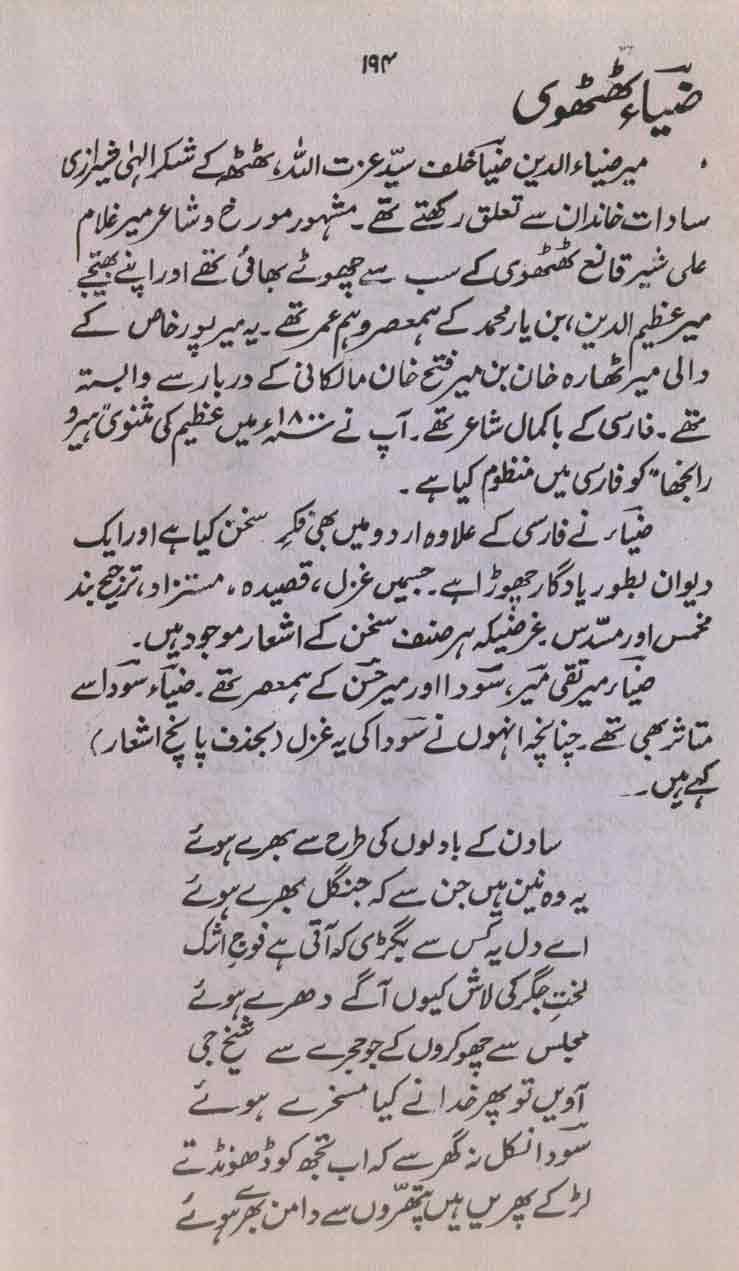 ۱۹۴
ضیاء ٹھٹھوی
میر ضیاء الدین ضیا خلف سیّد عزت اللہ، ٹھٹھہ کے شکر الہٰی شیرازی
سادات خاندان سے تعلق رکھتے تھے۔ مشہور مورخ و شاعر میر غلام
علی شیر قانع ٹھٹھوی کے سب سے چھوٹے بھائی تھے اور اپنے بھتیجے
میر عظیم الدین، بن یار محمد کے ہمعصر و ہم عمر تھے۔ یہ میرپور خاص کے
والی میر ٹھارہ خان بن میر فتح خان مالکانی کے دربار سے وابستہ
تھے۔ فارسی کے باکمال شاعر تھے۔ آپ نے ۱۸۰۰ء میں عظیم کی مثنوی "ہیر و
رانجھا" کو فارسی میں منظوم کیا ہے۔
ضیاء نے فارسی کے علاوہ اردو میں بھی فکرِ سخن کیا ہے اور ایک
دیوان بطور یادگار چھوڑا ہے۔ جسمیں غزل، قصیدہ، مستزاد، ترجیح بند
مخمس اور مسدّس غرضیکہ ہر صنف سخن کے اشعار موجود ہیں۔
ضیاء میر تقی میر، سودا اور میر حسن کے ہمعصر تھے۔ ضیاء سودا سے
متاثر بھی تھے۔ چنانچہ انہوں نے سودا کی یہ غزل (بحذف پانچ اشعار)
کہے ہیں۔
ساون کے بادلوں کی طرح سے بھرے ہوئے
یہ وہ نین ہیں جن سے کہ جنگل بھرے ہوئے
اے دل یہ کس سے بگڑی کہ آتی ہے فوجِ اشک
لختِ جگر کی لاش کیوں آگے دھرے ہوئے
مجلس سے چھوکروں کے جو حجرے سے شیخ جی
آویں تو پھر خدا نے کیا مسخرے ہوئے
سودا نکل نہ گھر سے کہ اب تجھ کو ڈھونڈتے
لڑکے پھریں ہیں پتھّروں سے دامن بھرے ہوئے